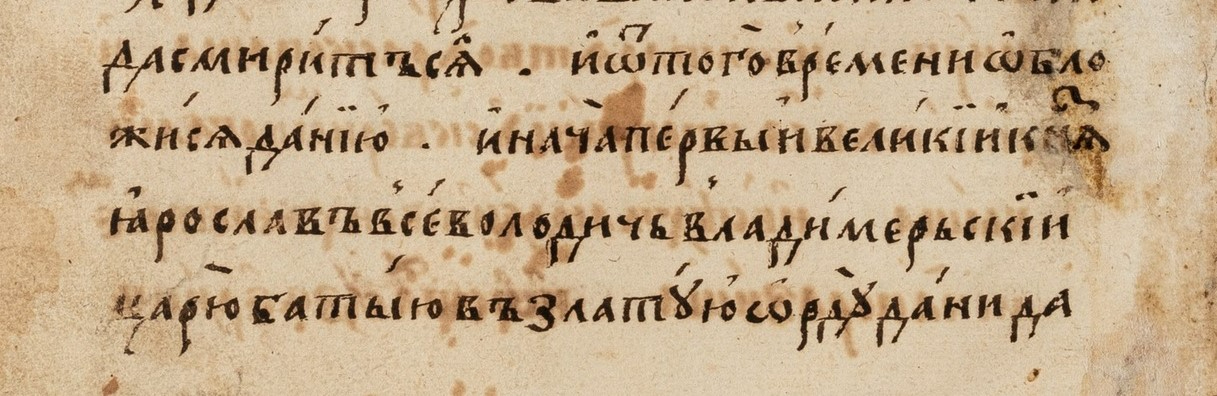 да смири́тъся̑ . и҆ ѿ того̀ вре́мени ѡ҆бло
жи́ся да́нїю . и҆ нача̀ пе́рвыи вели́кїи кн҃ѕ
ꙗ҆росла́въ все́володичь влади́мерьскїи
царю̀ баты́ю въ златꙋ́ю ѡ҆рдꙋ̀ да́ни да